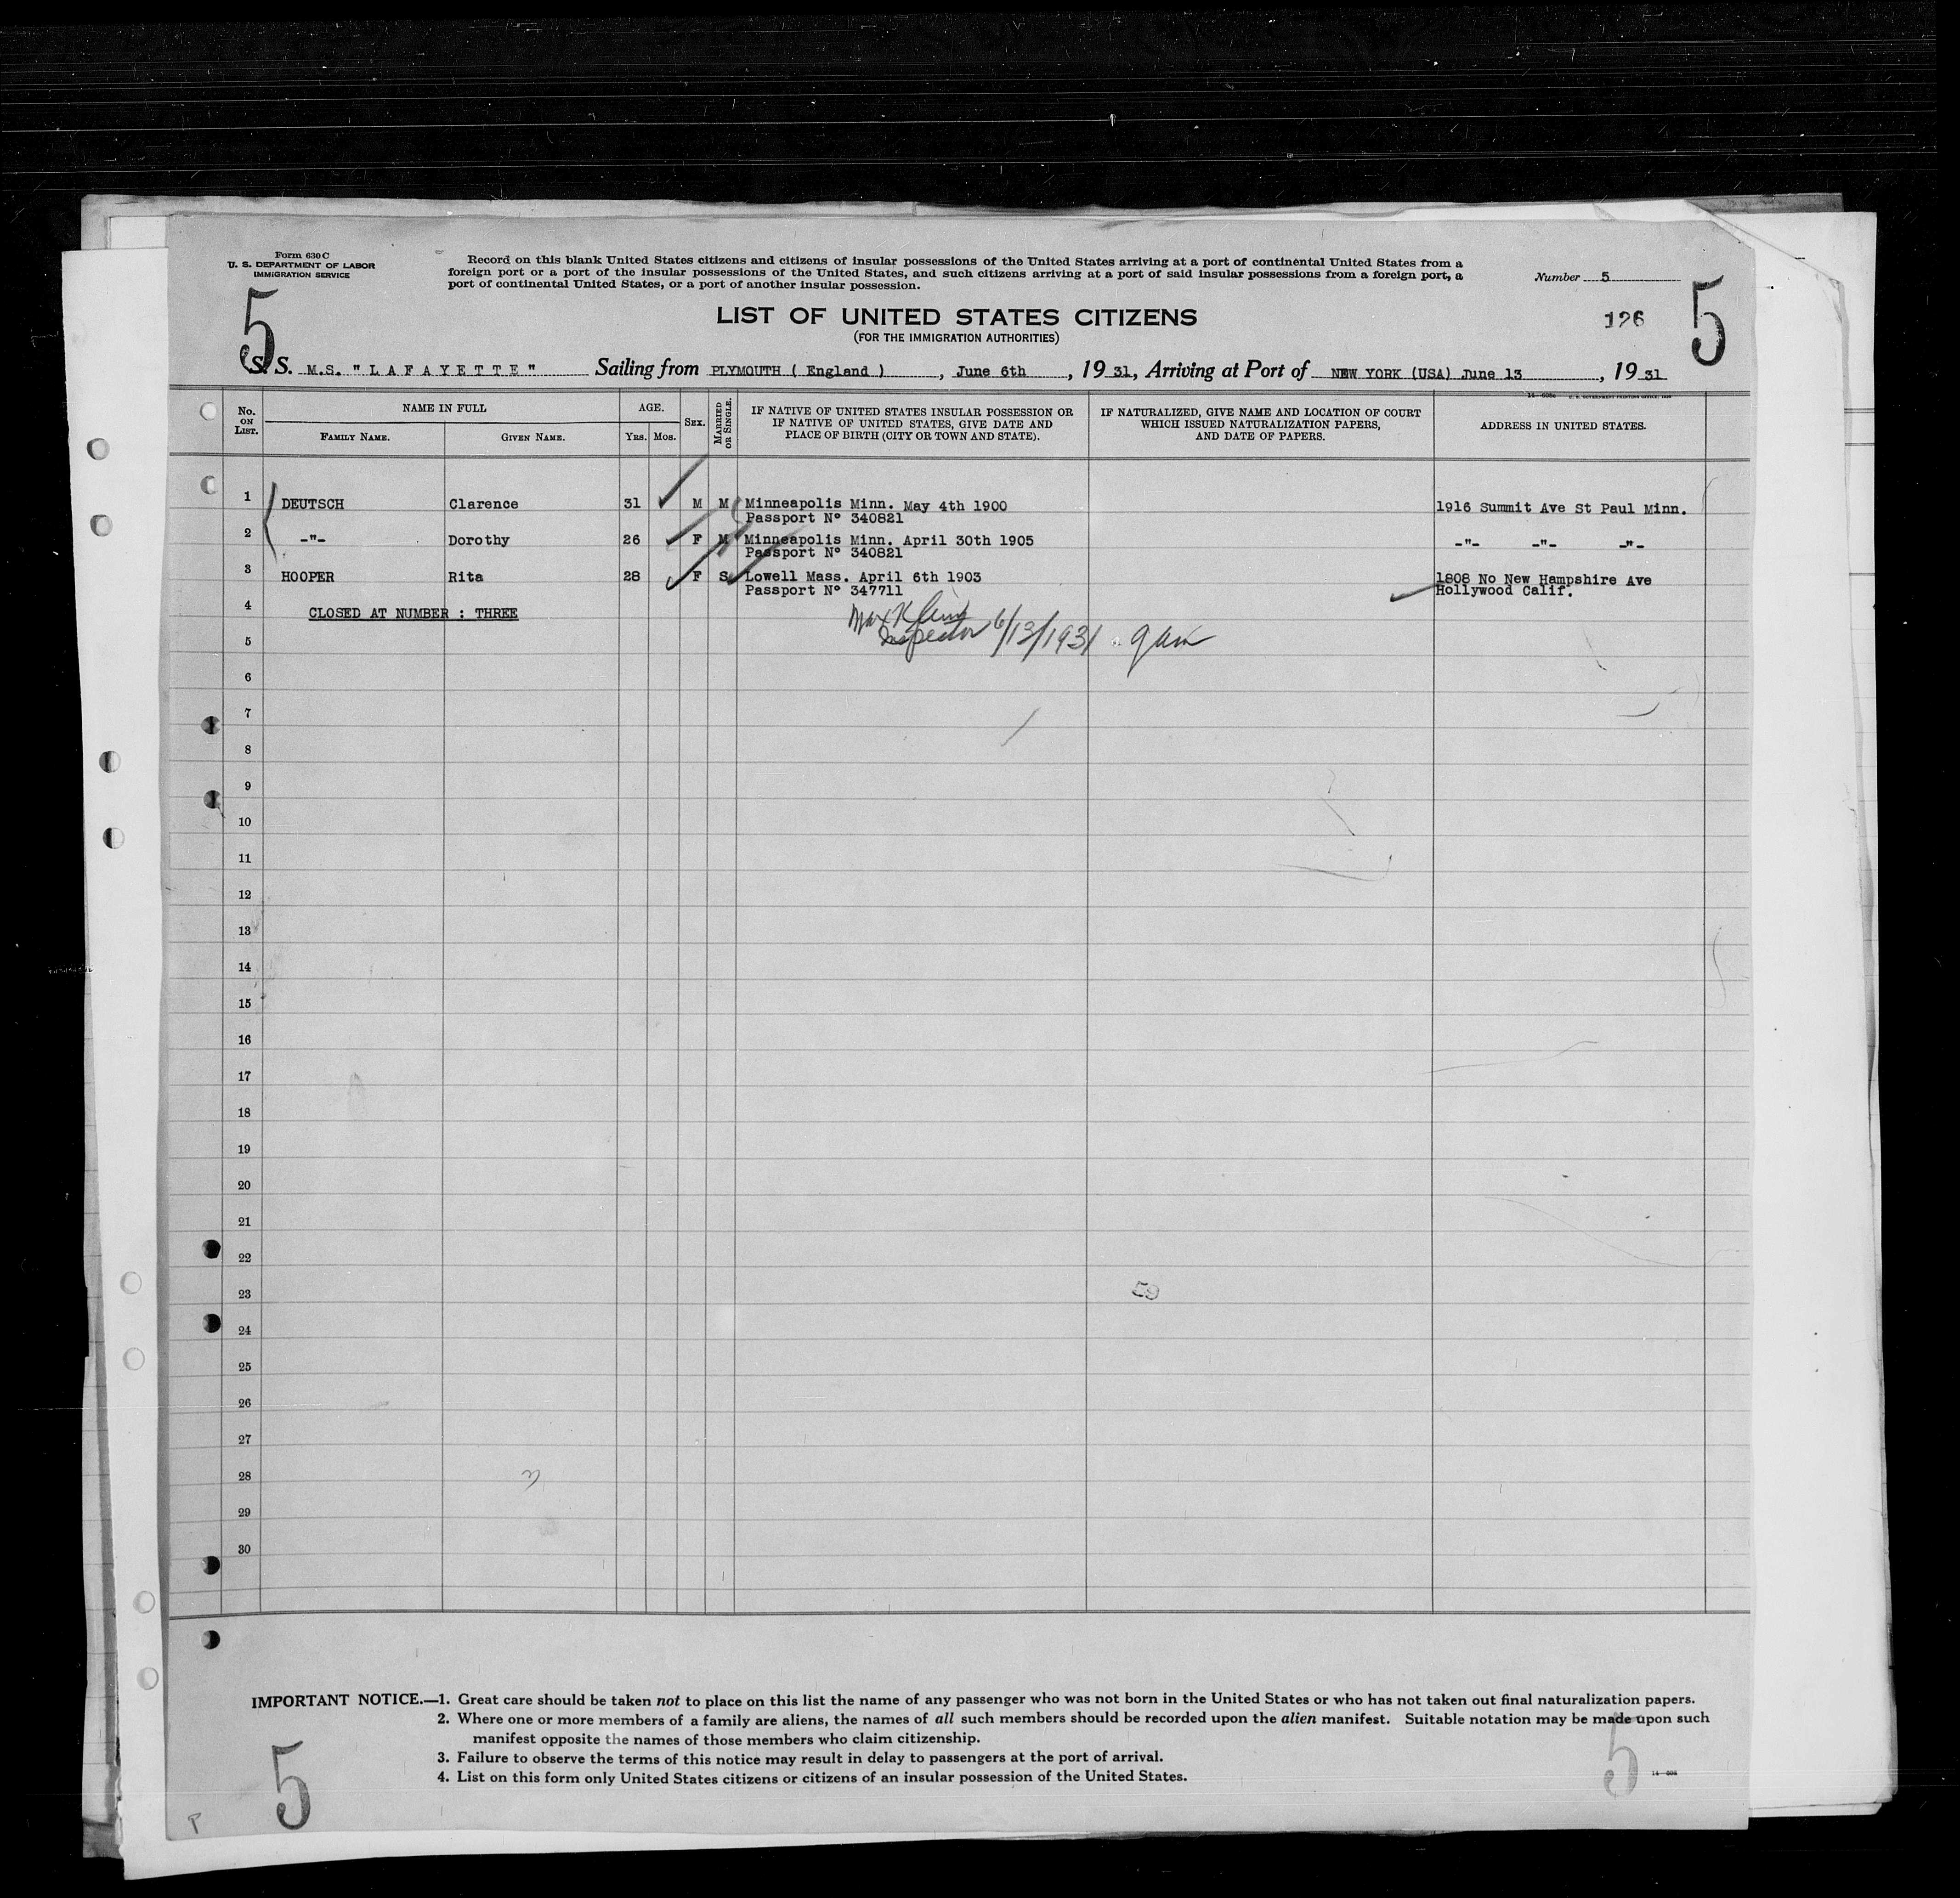 Form 630 C
U. S. DEPARTMENT OF LABOR
IMMIGRATION SERVICE
Record on this blank United States citizens and citizens of insular possessions of the United States arriving at a port of continental United States from a
foreign port or a port of the insular possessions of the United States, and such citizens arriving at a port of said insular possessions from a foreign port, a
port of continental United States, or a port of another insular possession.
Number 5
5
5
LIST OF UNITED STATES CITIZENS
126
(FOR THE IMMIGRATION AUTHORITIES)
S. S. M.S. "LAFAYETTE" Sailing from PLYMOUTH ( England ), June 6th, 19 31, Arriving at Port of NEW YORK (USA) June 13, 19 31
No. ON LIST.
NAME IN FULL
FAMILY NAME.
GIVEN NAME.
AGE.
YRS.
MOS.
SEX.
MARRIED OR SINGLE.
IF NATIVE OF UNITED STATES INSULAR POSSESSION OR
IF NATIVE OF UNITED STATES, GIVE DATE AND
PLACE OF BIRTH (CITY OR TOWN AND STATE).
IF NATURALIZED, GIVE NAME AND LOCATION OF COURT
WHICH ISSUED NATURALIZATION PAPERS,
AND DATE OF PAPERS.
ADDRESS IN UNITED STATES.
1 DEUTSCH Clarence 31 M M Minneapolis Minn. May 4th 1900 1916 Summit Ave St Paul Minn.
Passport Nº 340821
2 -"- Dorothy 26 F M Minneapolis Minn. April 30th 1905 -"- -"- -"-
Passport Nº 340821
3 HOOPER Rita 28 F S Lowell Mass. April 6th 1903 1808 No New Hampshire Ave
Passport Nº 347711 Hollywood Calif.
4 CLOSED AT NUMBER : THREE
Max
Inspector 6/13/1931
5
6
7
8
9
10
11
12
13
14
15
16
17
18
19
20
21
22
23
24
25
26
27
28
29
30
IMPORTANT NOTICE.—1. Great care should be taken not to place on this list the name of any passenger who was not born in the United States or who has not taken out final naturalization papers.
2. Where one or more members of a family are aliens, the names of all such members should be recorded upon the alien manifest. Suitable notation may be made upon such
manifest opposite the names of those members who claim citizenship.
3. Failure to observe the terms of this notice may result in delay to passengers at the port of arrival.
4. List on this form only United States citizens or citizens of an insular possession of the United States.
5
5